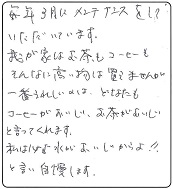 毎年3月にメンテナンスをして
いただいています。
我が家はお茶もコーヒーも
そんなに高い物は買てませんが
一番うれしいのは、どなたも
コーヒーがおいしい、お茶がおいしい
と言ってくれます。
私はいな水がおいしいからよ!!
と言い自慢します。